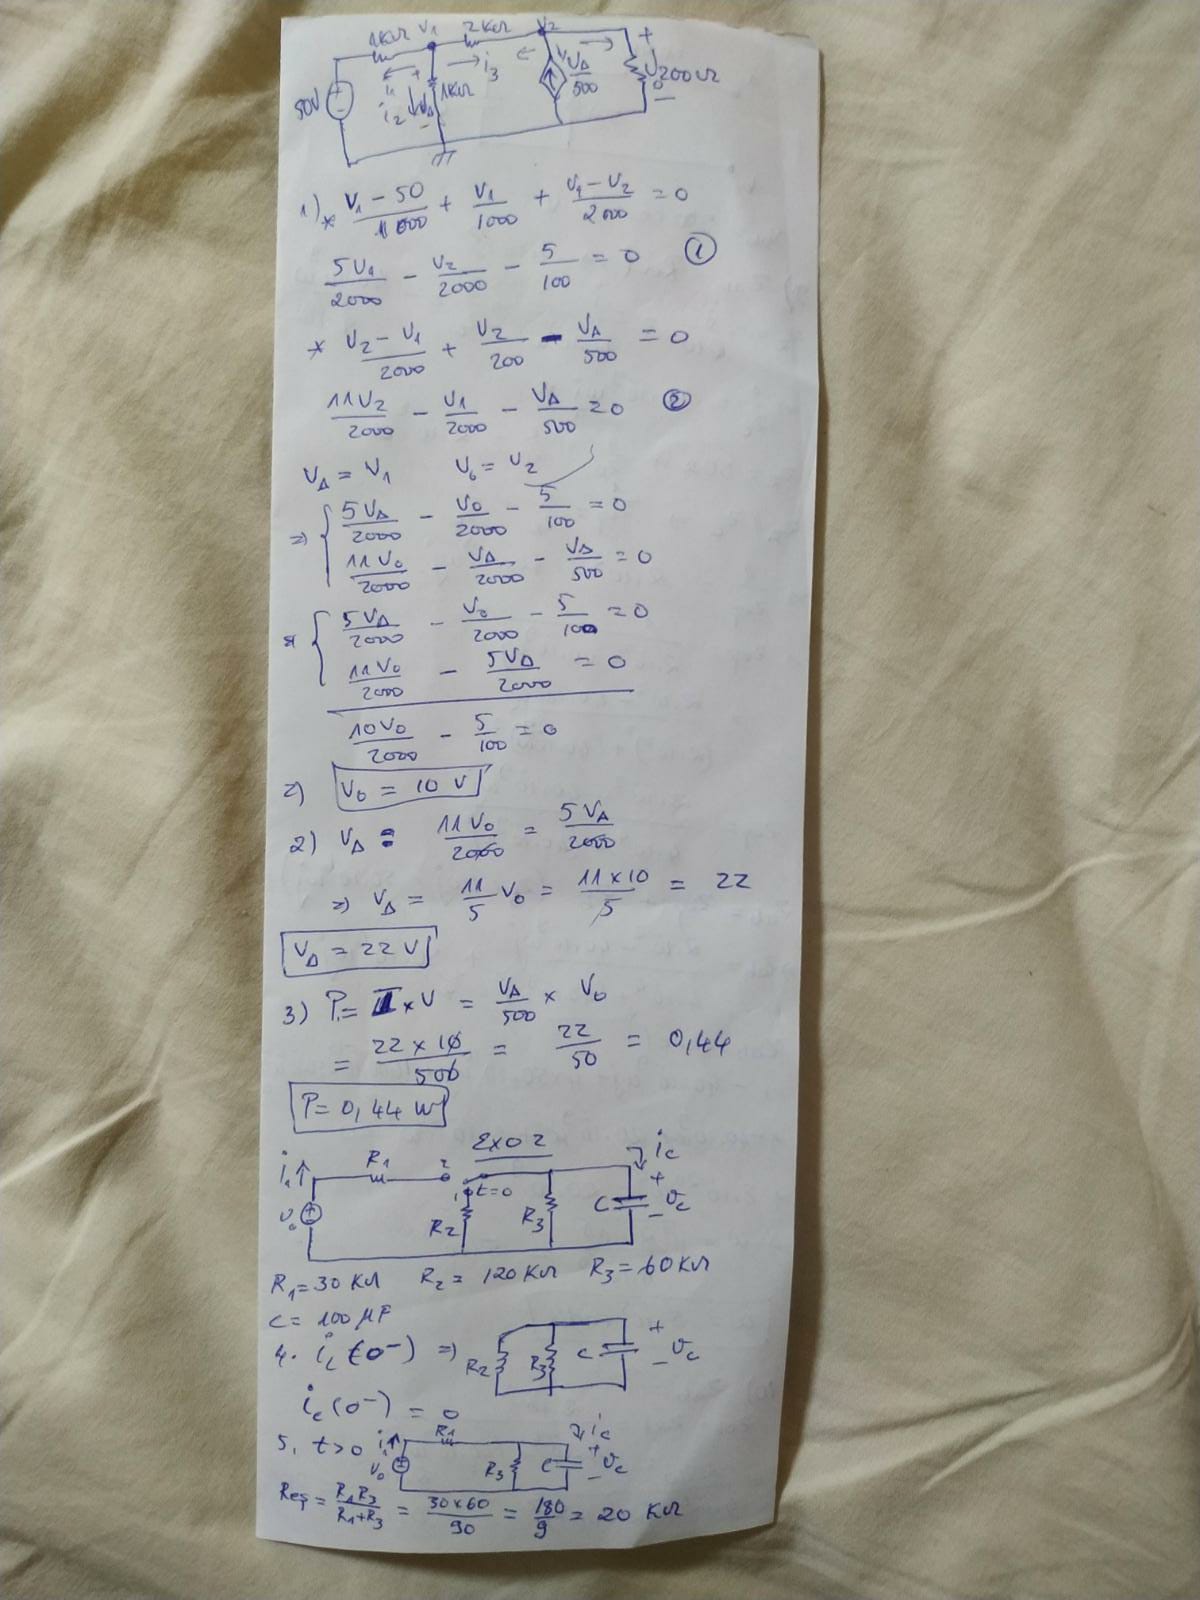 1KΩ V1 2KΩ V2
50V i1 + i2 VΔ - 1KΩ i3 VΔ/500 + V0 - 200Ω
1) * (V1 - 50)/1000 + V1/1000 + (V1 - V2)/2000 = 0
5V1/2000 - V2/2000 - 5/100 = 0 ①
* (V2 - V1)/2000 + V2/200 - VΔ/500 = 0
11V2/2000 - V1/2000 - VΔ/500 = 0 ②
VΔ = V1 V0 = V2
=> { 5VΔ/2000 - V0/2000 - 5/100 = 0
11V0/2000 - VΔ/2000 - VΔ/500 = 0
{ 5VΔ/2000 - V0/2000 - 5/100 = 0
11V0/2000 - 5VΔ/2000 = 0
10V0/2000 - 5/100 = 0
2) V0 = 10 V
2) VΔ = 11V0/2000 = 5VΔ/2000
=> VΔ = 11/5 V0 = 11×10/5 = 22
VΔ = 22 V
3) P = I × V = VΔ/500 × V0
= 22 × 10/500 = 22/50 = 0,44
P = 0,44 W
Exo 2
i1 R1 2 1 t=0 ic
R2 R3 C + vc -
R1 = 30 KΩ R2 = 120 KΩ R3 = 60 KΩ
C = 100 μF
4. ic(0-) => R2 R3 C + vc -
ic(0-) = 0
5, t>0 i1 V0 R1 R3 C ic + vc -
Req = R1R3/R1+R3 = 30×60/90 = 180/9 = 20 KΩ